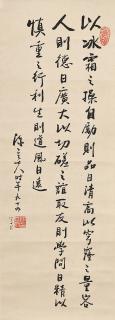 以冰霜之操自勵則品日清高以穹窿之量容
人則德日廣大以切磋之誼取友則學問日精以
慎重之行利生則道風日遠